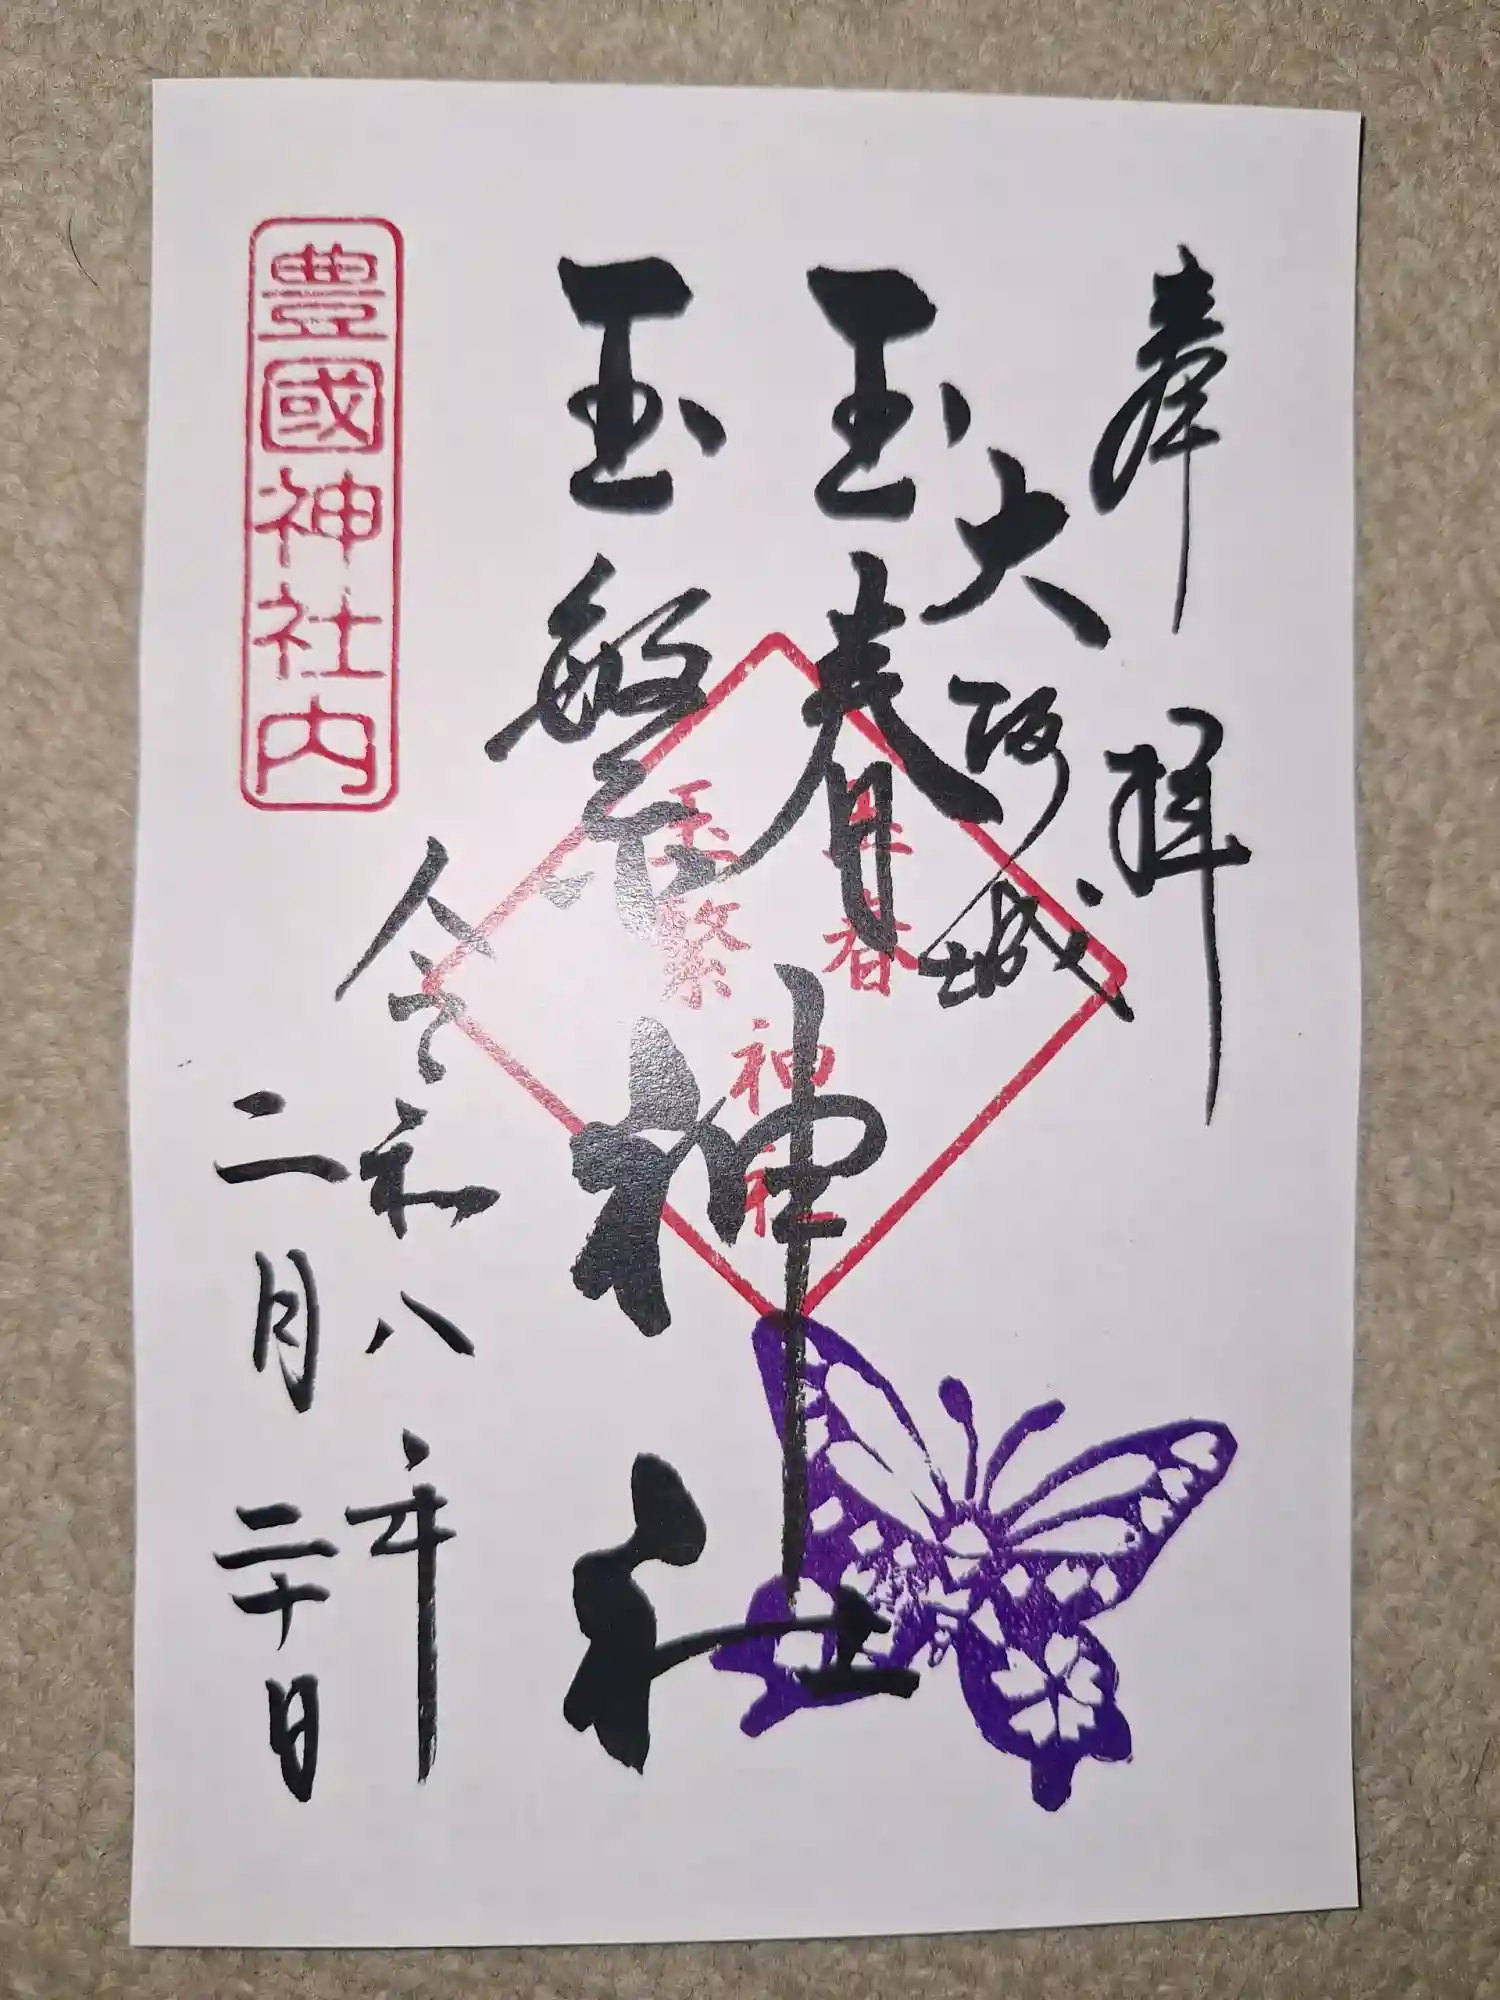 奉拝
大阪城
玉春
玉繁
神社
玉春
玉繁
神社
令和八年
二月二十日
豊國神社内